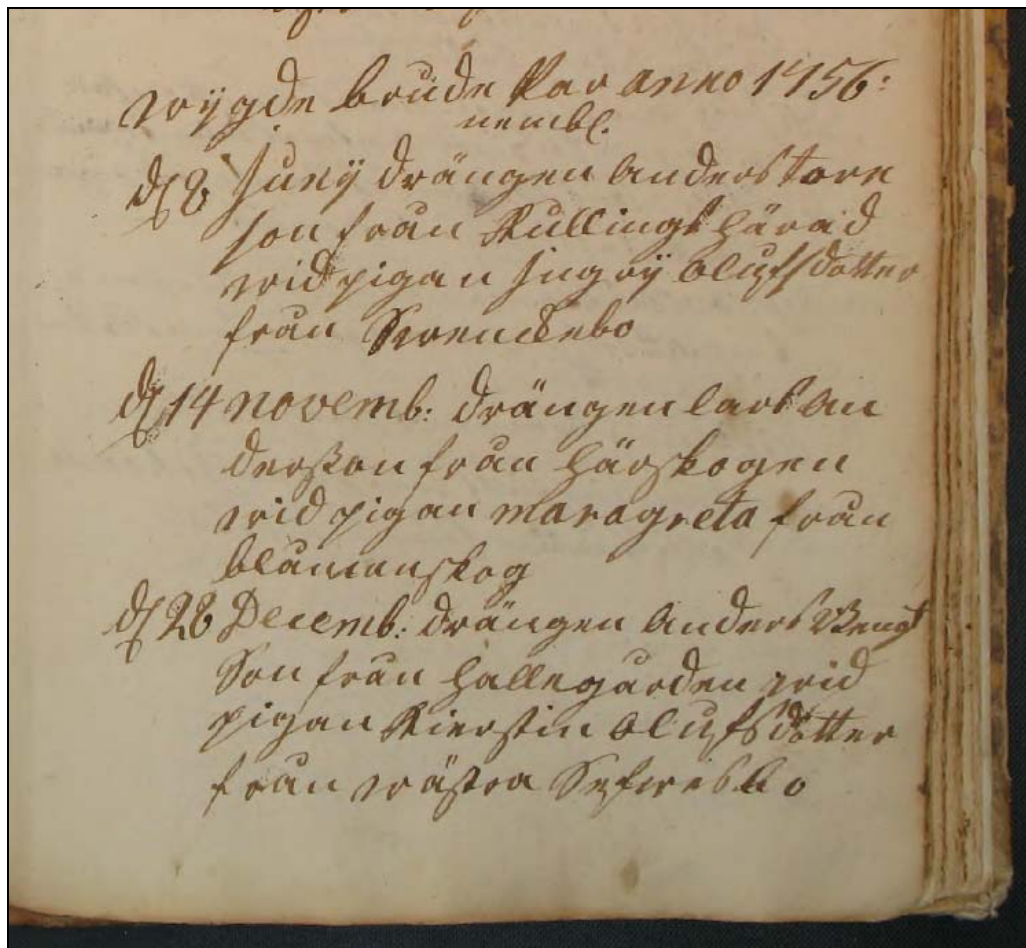 wÿgde brude Par anno 1756:
nembl.
d 8 Junÿ drängen Anders Tore
son från Kullings härad
wid pigan Ingrÿ olufsdotter
från Swenskebo
d 14 novemb: drängen lars An
dersson från härskogen
wid pigan maragreta från
blåmanskog
d 28 Decemb: drängen Anders Bengt
Son från hallegården wid
pigan Kierstin olufsdotter
från wästra